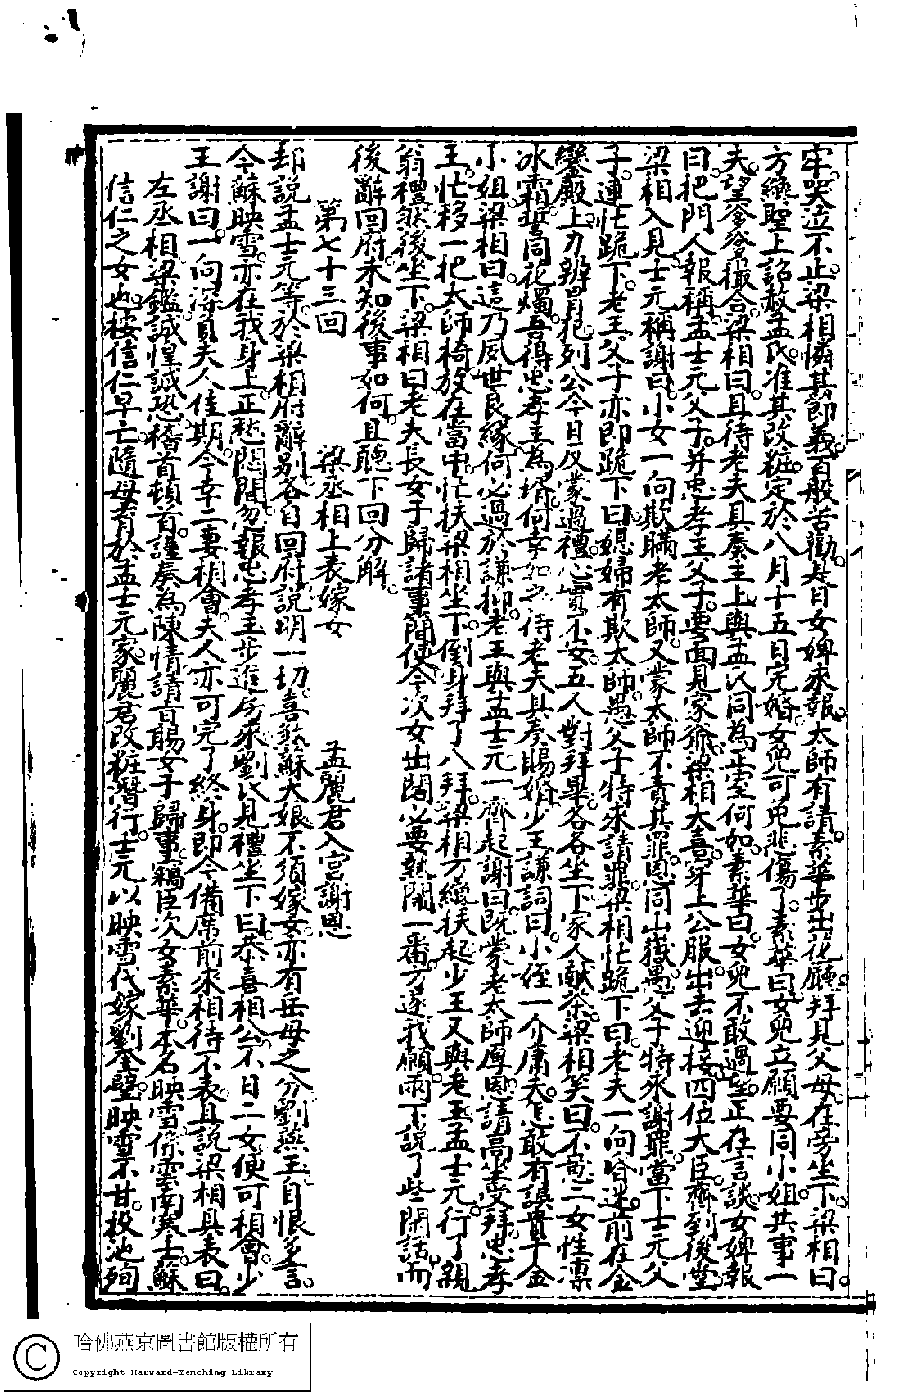 牢。哭泣不止。梁相憐其節義。百般苦勸。是日女婢來報。太師有請。素華步出花廳。拜見父母。在旁坐下。梁相曰。
方纔聖上詔赦孟氏。准其改粧。定於八月十五日完婚。女兒可免悲傷了。素華曰。女兒立願要同小姐共事一
夫。望爹爹撮合。梁相曰。且待老夫具奏主上。與孟氏同為正室何如。素華曰。女兒不敢過望。正在言談。女婢報
曰。把門人報稱。孟士元父子。并忠孝王父子。要面見家爺。梁相大喜。穿上公服。出去迎接。四位大臣。齊到後堂
梁相入見。士元稱謝曰。小女一向欺瞞老太師。又蒙太師不責其罪。恩同山嶽。愚父子特來謝罪。當下士元父
子。連忙跪下。老王父子亦即跪下曰。媳婦有欺太師。愚父子特來請罪。梁相忙跪下曰。老夫一向昏迷。前在金
鑾殿上。力辨冒犯列公。今日反蒙過禮。心實不安。五人對拜畢。各各坐下。家人献茶。梁相笑曰。不想二女性稟
冰霜。誓同花燭。吾得忠孝王為壻。何幸如之。待老夫具奏賜婚。少王謙詞曰。小侄一介庸夫。怎敢有誤貴千金
小姐。梁相曰。這乃夙世良緣。何必過於謙抑。老王與孟士元一齊起謝曰。既蒙老太師厚恩。請高坐受拜。忠孝
王。忙移一把太師椅放在當中。忙扶梁相坐下。倒身拜了八拜。梁相方纔扶起。少王又與老王孟士元。行了親
翁禮。然後坐下。梁相曰。老夫長女于歸。諸事簡便。今次女出閣。必要熱鬧一番。方遂我願。兩下說了些閒話。而
後辭回府。未知後事如何。且聽下回分解。
第七十三回　梁丞相上表嫁女　孟麗君入宮謝恩
却說孟士元等。於梁相府辭別。各自回府。說明一切。喜煞蘇大娘。不須嫁女。亦有岳母之分。劉燕玉自恨多言。
今蘇映雪。亦在我身上。正愁悶間。忽報忠孝王步進房來。劉氏見禮坐下曰。恭喜相公。不日二女便可相會。少
王謝曰。一向深負夫人佳期。今幸二妻相會。夫人亦可完了終身。即令備席前來相待。不表。且說梁相具表曰。
左丞相梁鑑。誠惶誠恐。稽首頓首。謹奏為陳情請旨。賜女于歸事。竊臣次女素華。本名映雪。係雲南寒士。蘇
信仁之女也。接信仁早亡。隨母育於孟士元家。麗君改粧潛行。士元以映雪代嫁劉奎璧。映雪不甘。投池殉
哈佛燕京圖書館版權所有
Copyright Harvard-Yenching Library